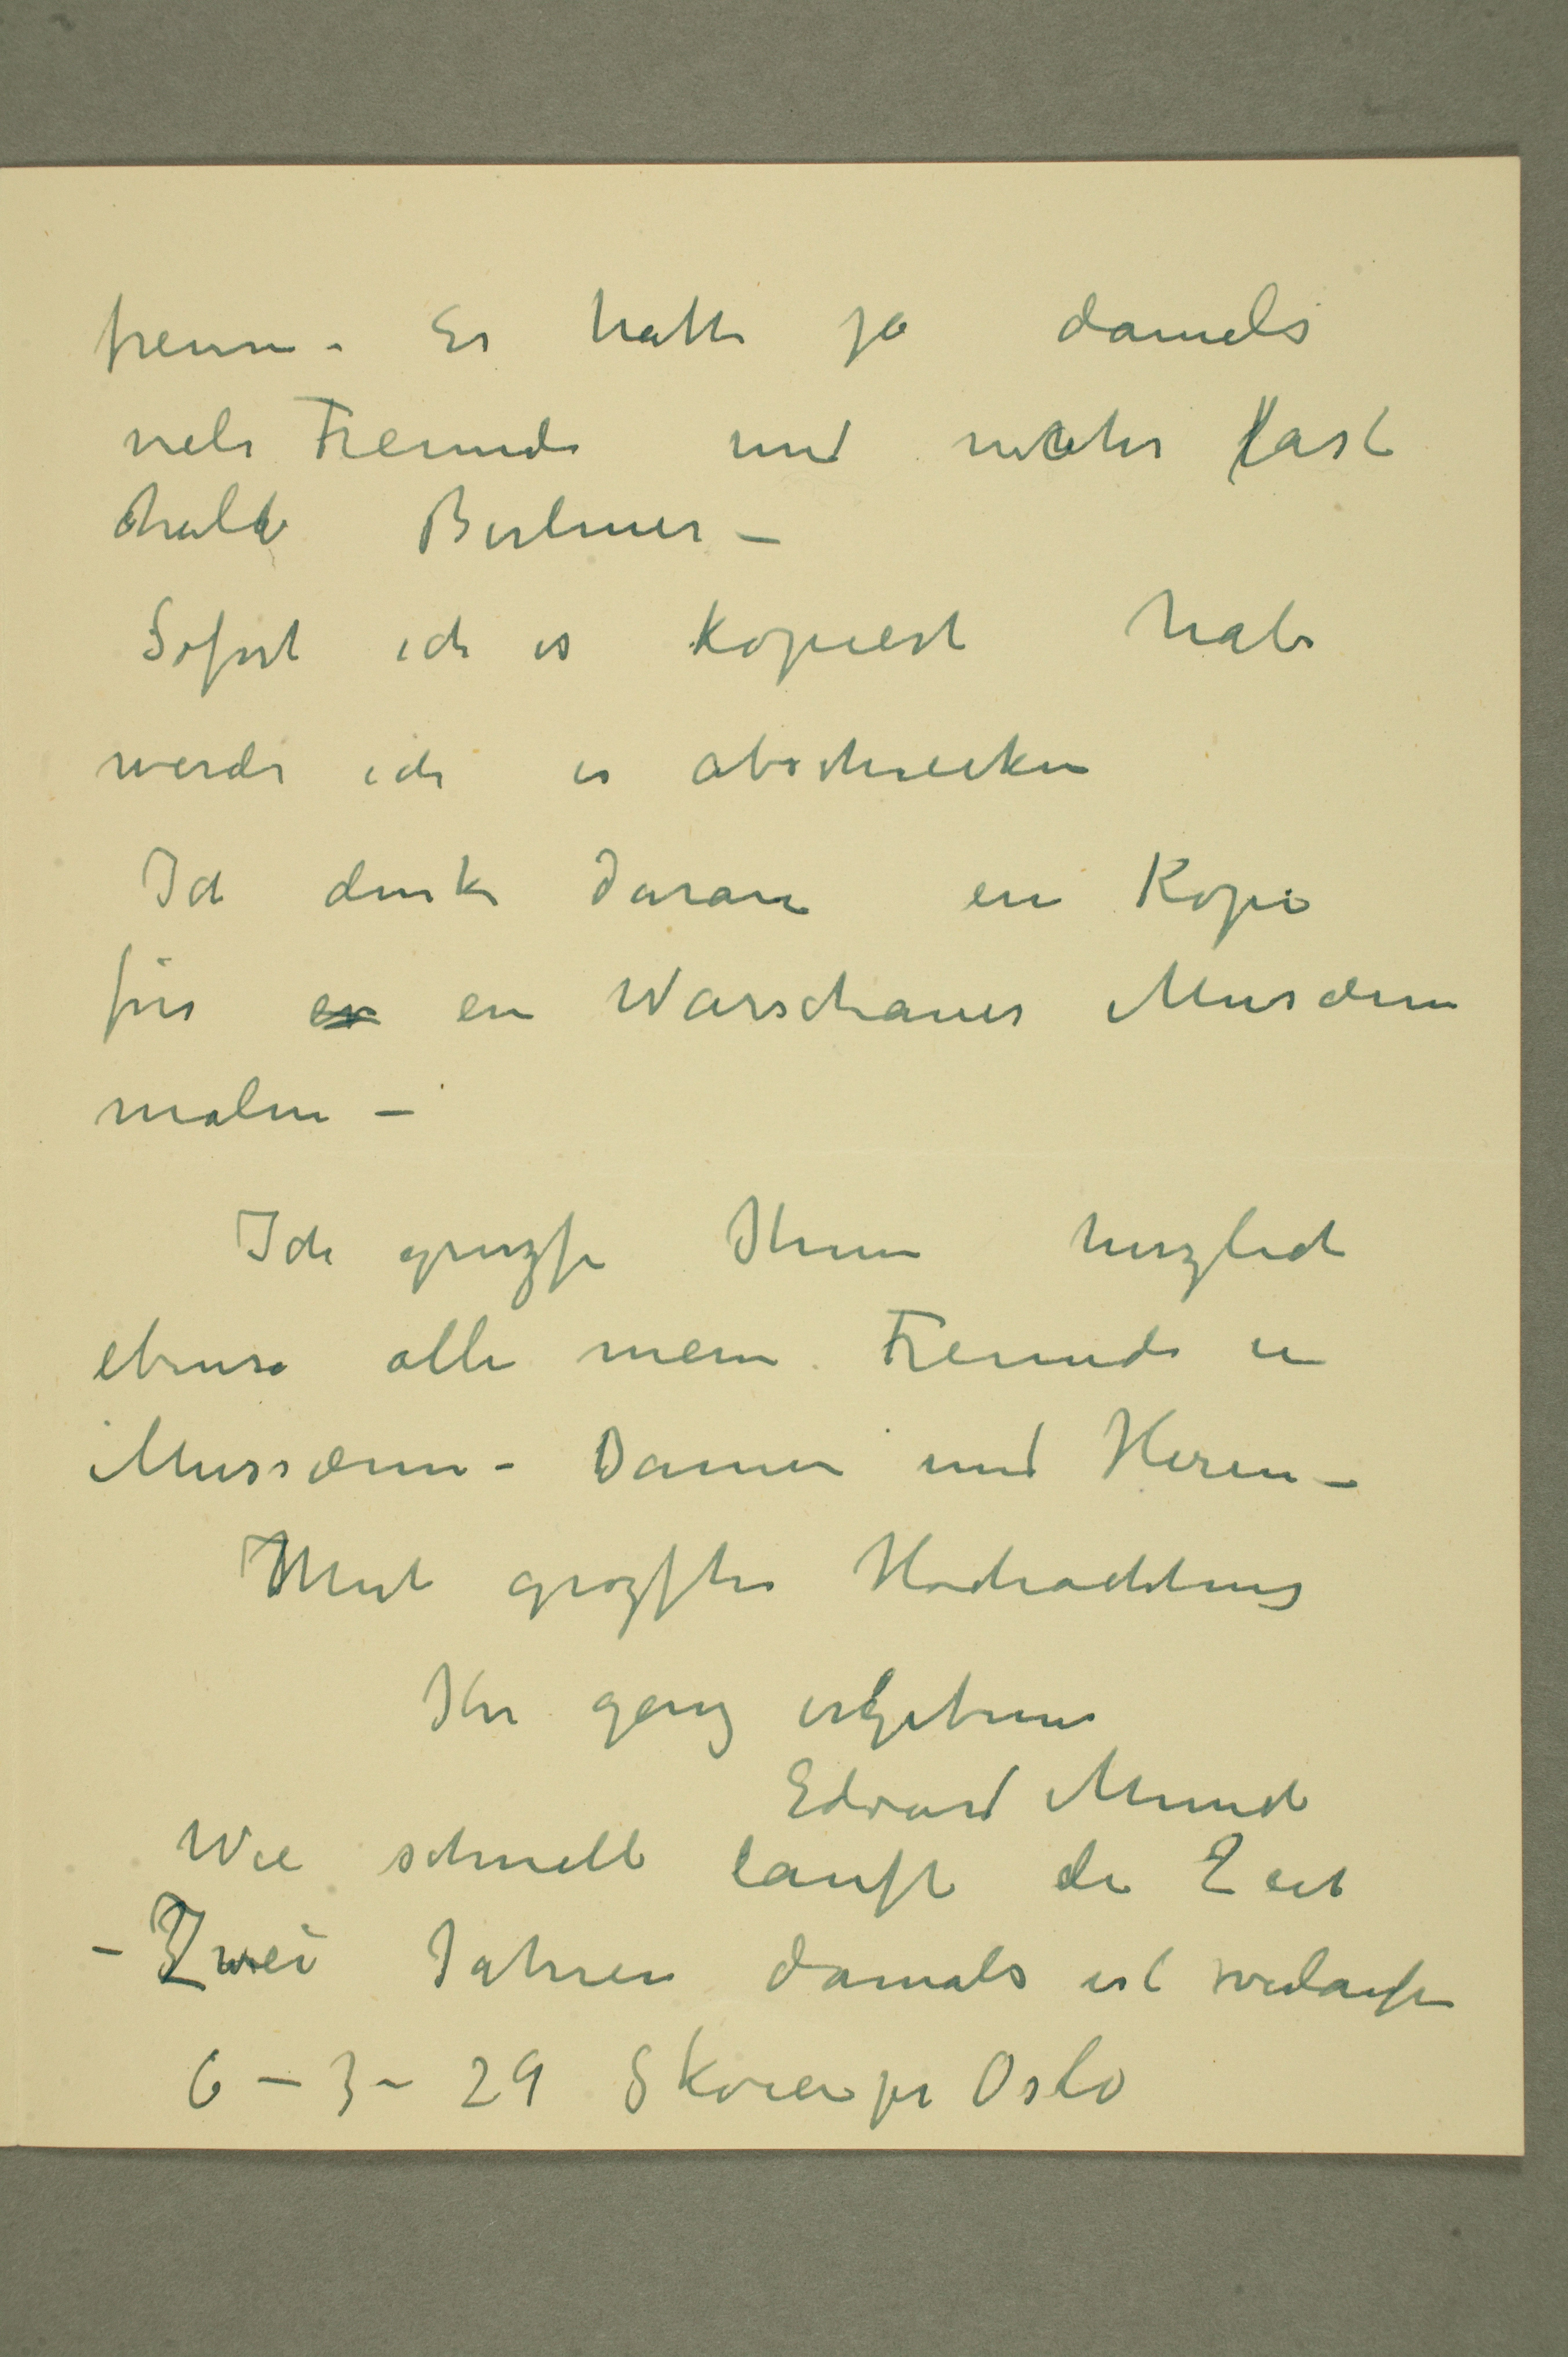 freuen – Er hatte ja damals
viele Freunde und  fast
halb Berliner –
Sofort ich es kopiert habe
werde ich es abschiecken
Ich denke daran ein Kopie
für ein Warschauer Musæum
malen –
Ich gruzße Ihnen herzlich
ebenso alle meine Freunde in
Mussæum – Damen und Heren –
Mit grozßter Hochachtung
Ihr ganz ergebene
Edvard Munch
Wie schnell lauft die Zeit
– Zwei Jahren damals ist verlaufen
6 – 3 – 29 Skøien pr Oslo